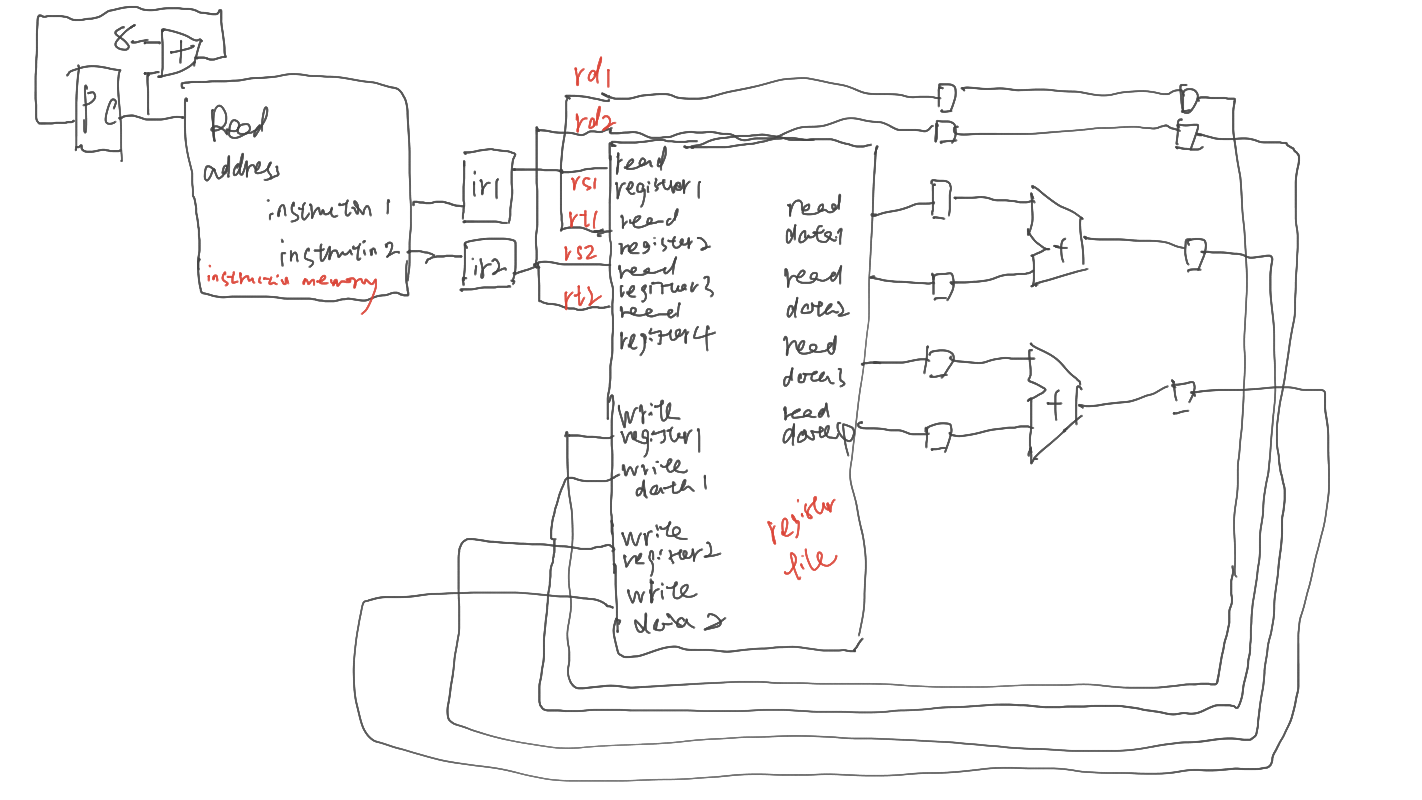 8
+
PC
Read
address
instructin 1
instructin 2
instructin memory
ir1
ir2
rd1
rd2
rs1
rt1
rs2
rt2
read
register1
read
register2
read
register3
read
register4
write
register1
write
data1
write
register2
write
data 2
read
data1
read
data2
read
data3
read
register
file
f
f